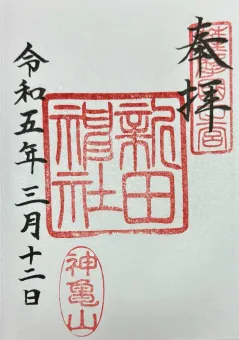 奉拝
新田神社
令和五年三月十二日
神亀山